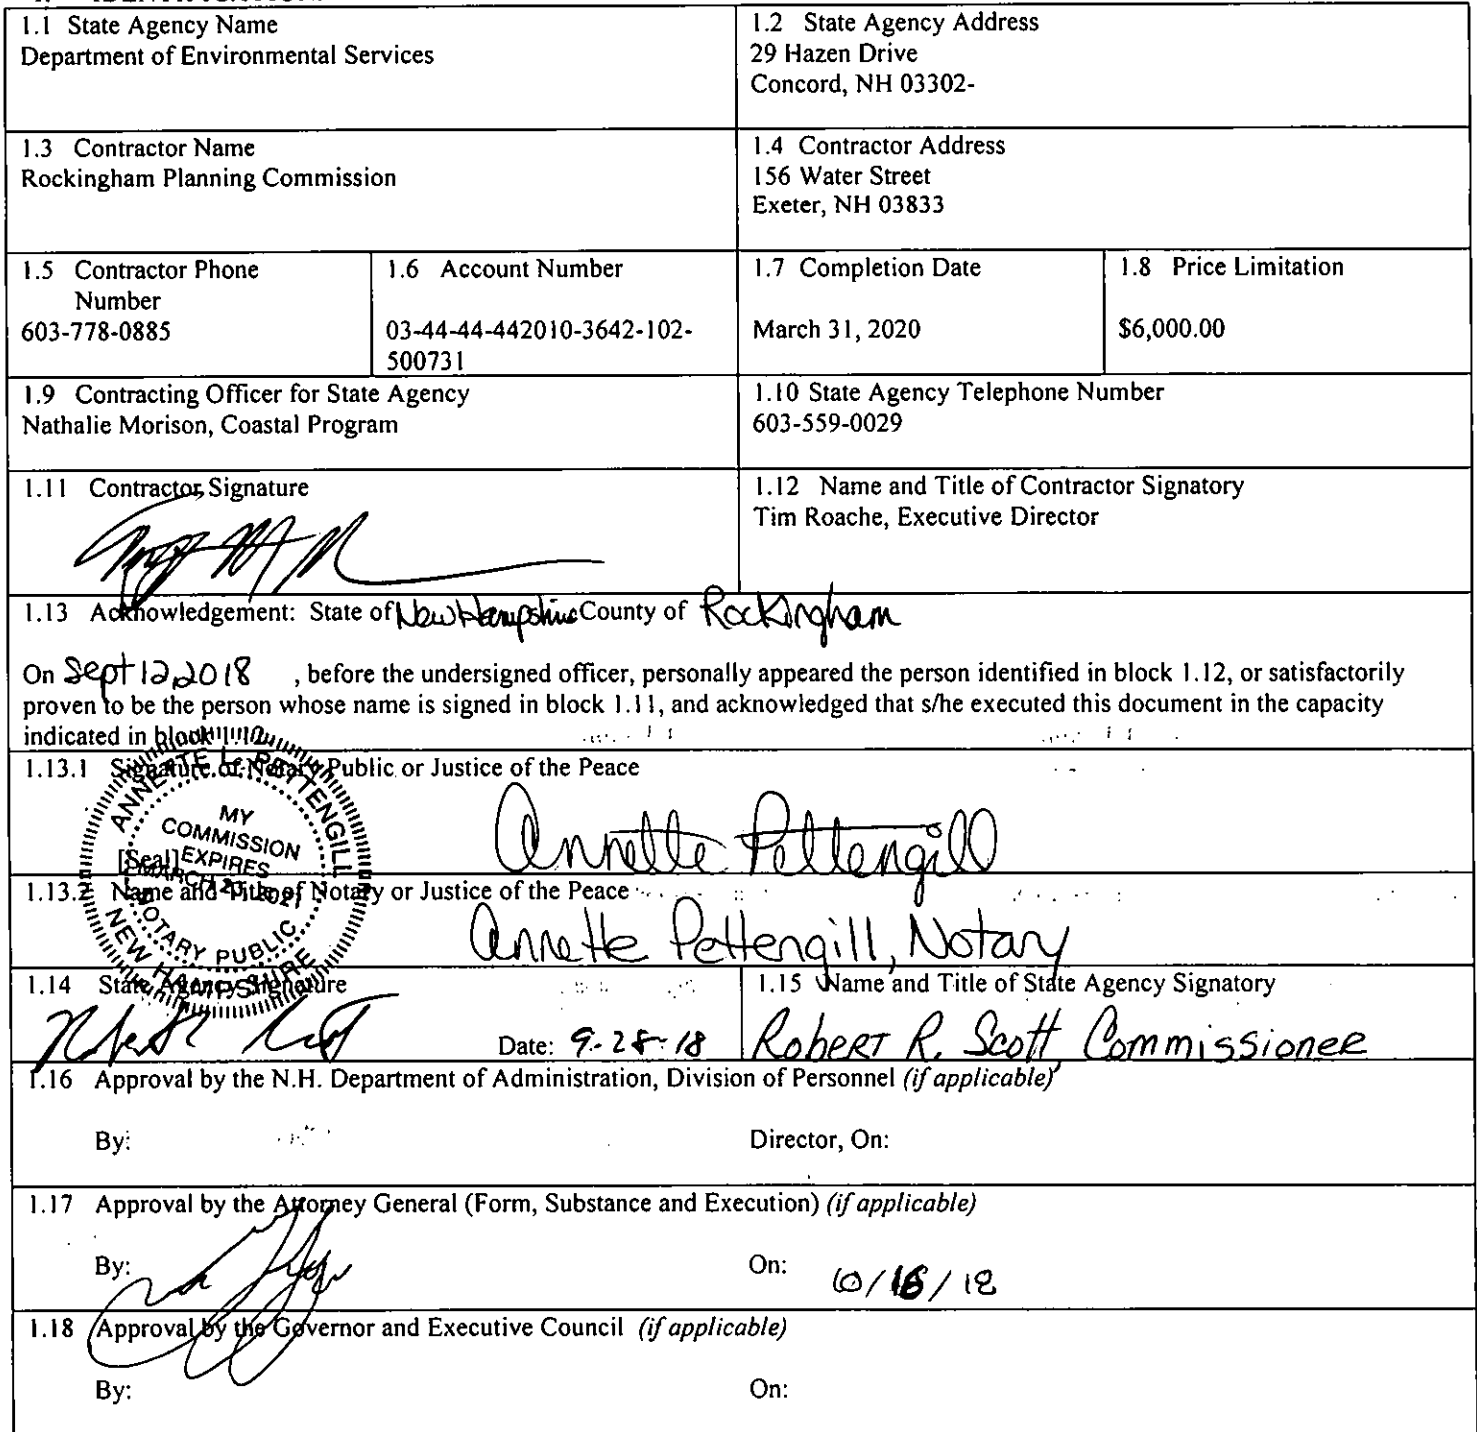 1.1 State Agency Name
Department of Environmental Services
1.2 State Agency Address
29 Hazen Drive
Concord, NH 03302-
1.3 Contractor Name
Rockingham Planning Commission
1.4 Contractor Address
156 Water Street
Exeter, NH 03833
1.5 Contractor Phone
Number
603-778-0885
1.6 Account Number
03-44-44-442010-3642-102-
500731
1.7 Completion Date
March 31, 2020
1.8 Price Limitation
$6,000.00
1.9 Contracting Officer for State Agency
Nathalie Morison, Coastal Program
1.10 State Agency Telephone Number
603-559-0029
1.11 Contractor Signature
1.12 Name and Title of Contractor Signatory
Tim Roache, Executive Director
1.13 Acknowledgement: State of New Hampshire County of Rockingham
On Sept 12, 2018 , before the undersigned officer, personally appeared the person identified in block 1.12, or satisfactorily
proven to be the person whose name is signed in block 1.11, and acknowledged that s/he executed this document in the capacity
indicated in block 1.12.
1.13.1 Signature of Notary Public or Justice of the Peace
Annette Pettengill
[Seal]
ANNETTE L. PETTENGILL
MY
COMMISSION
EXPIRES
MARCH 2021
NOTARY PUBLIC
NEW HAMPSHIRE
1.13.2 Name and Title of Notary or Justice of the Peace
Annette Pettengill, Notary
1.14 State Agency Signature
Date: 9-28-18
1.15 Name and Title of State Agency Signatory
Robert R. Scott, Commissioner
1.16 Approval by the N.H. Department of Administration, Division of Personnel (if applicable)
By:
Director, On:
1.17 Approval by the Attorney General (Form, Substance and Execution) (if applicable)
By:
On: 10/16/18
1.18 Approval by the Governor and Executive Council (if applicable)
By:
On: